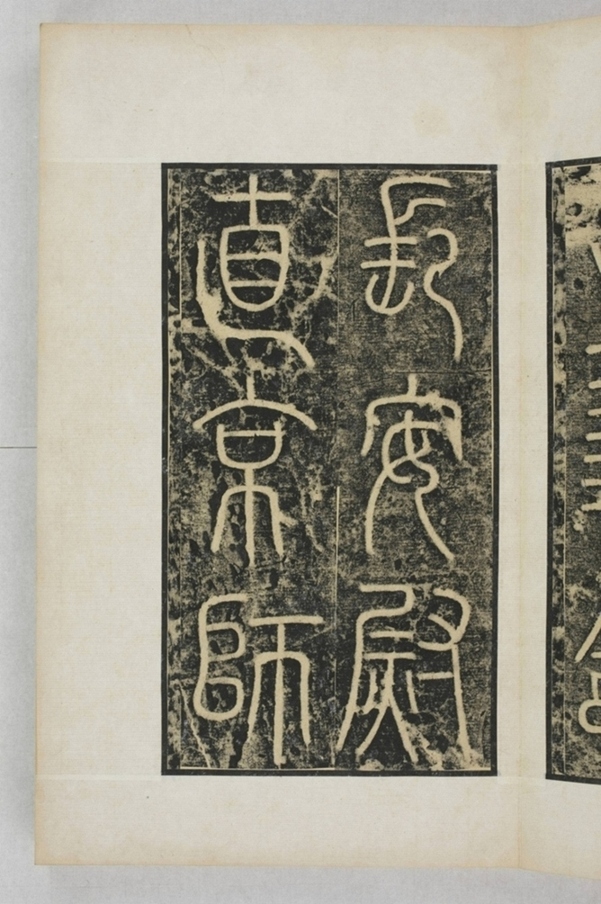 長安尉
直京師